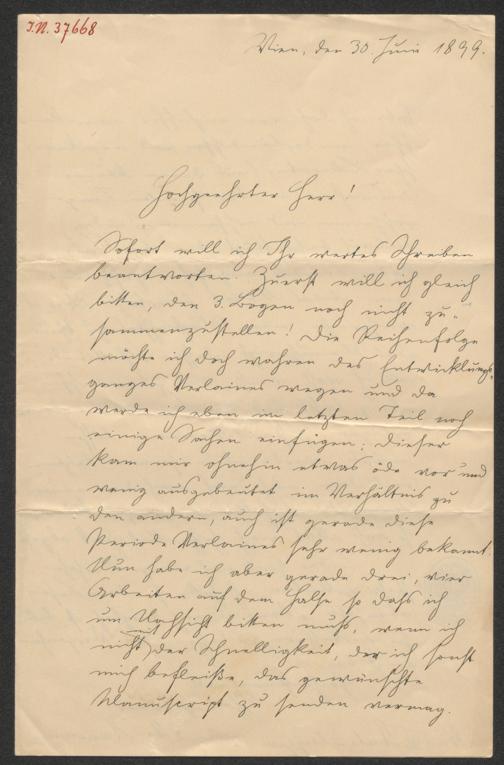 I.N. 37668
Wien, den 30. Juni 1899.
Hochgeehrter Herr!
Sofort will ich Ihr wertes Schreiben
beantworten. Zuerst will ich gleich
bitten, den 3. Bogen noch nicht zu-
sammenzustellen! Die Reihenfolge
möchte ich doch wahren des Entwicklungs-
ganges Verlaines wegen und da
werde ich eben im letzten Teil noch
einige Sachen einfügen; dieser
kam mir ohnehin etwas öde vor und
wenig ausgebeutet im Verhältnis zu
den andern, auch ist gerade diese
Periode Verlaines sehr wenig bekannt.
Nun habe ich aber gerade drei, vier
Arbeiten auf dem Halse so dass ich
um Nachsicht bitten muss, wenn ich
nicht mit der Schnelligkeit, der ich sonst
mich befleiße, das gewünschte
Manuscript zu senden vermag.